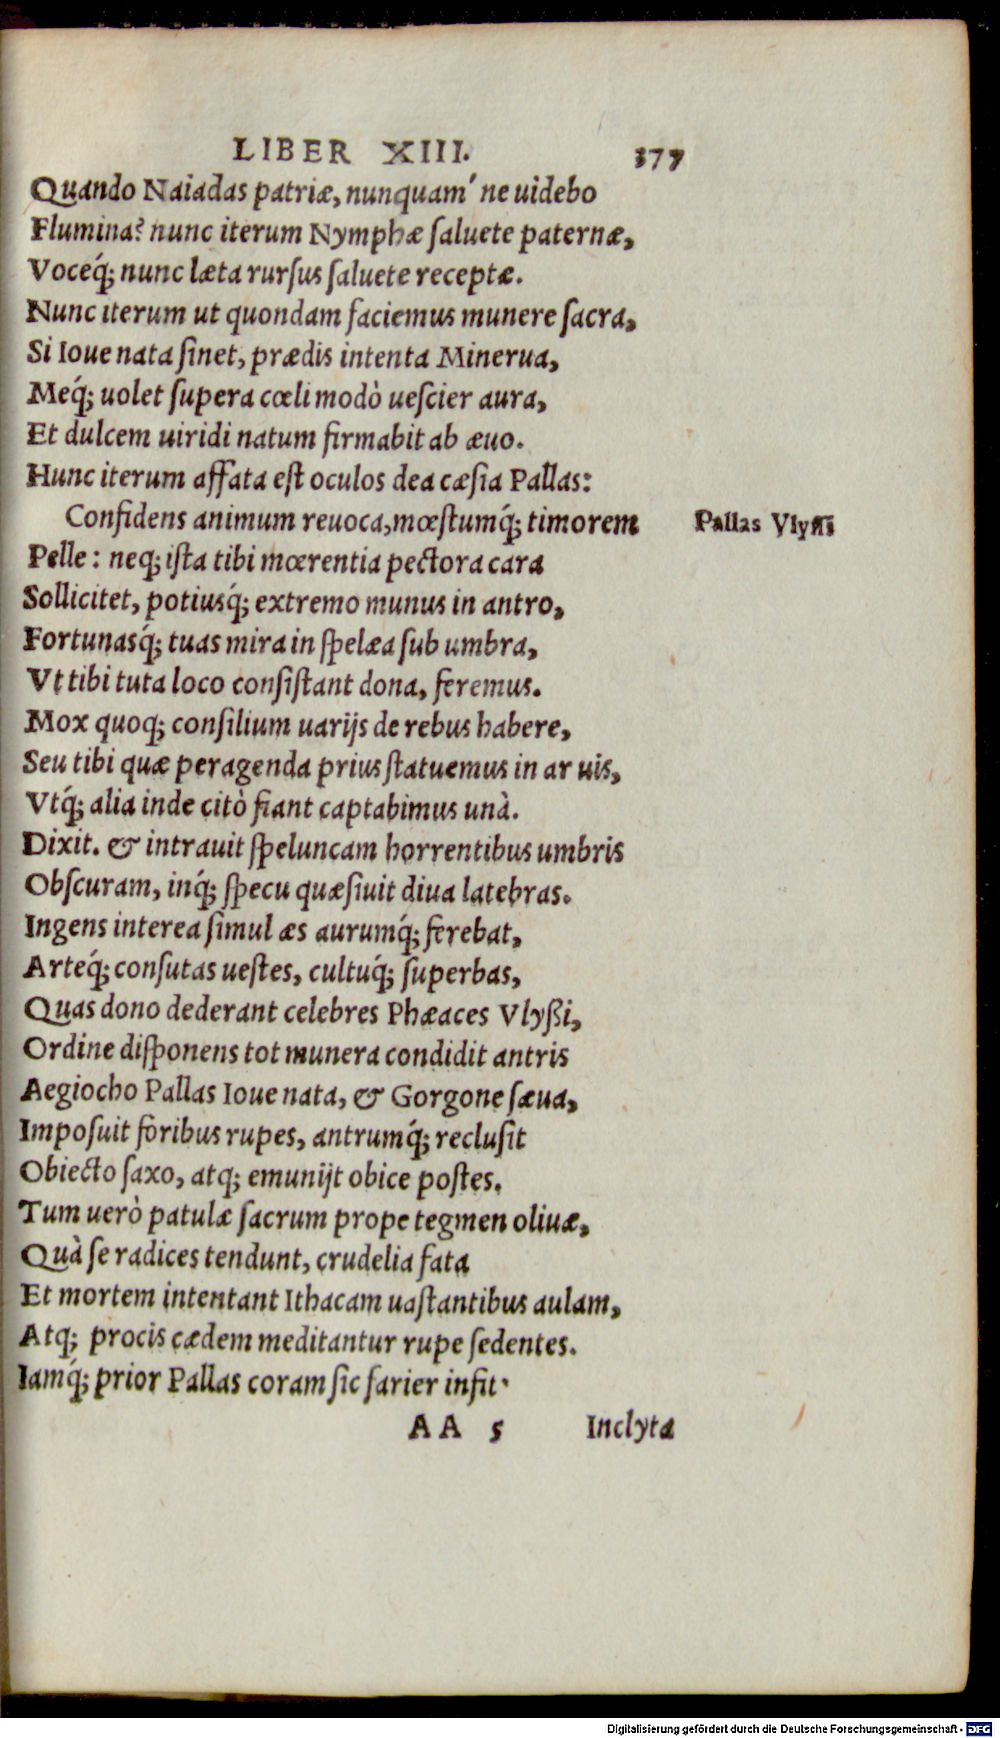 LIBER XIII. 377
Quando Naiadas patriæ, nunquam' ne uidebo
Flumina? nunc iterum Nymphæ ſaluete paternæ,
Voceq́; nunc læta rurſus ſaluete receptæ.
Nunc iterum ut quondam faciemus munere ſacra,
Si Ioue nata ſinet, prædis intenta Minerua,
Meq́; uolet ſupera cœli modò ueſcier aura,
Et dulcem uiridi natum firmabit ab æuo.
Hunc iterum affata eſt oculos dea cæſia Pallas:
Confidens animum reuoca, mœſtumq́; timorem
Pallas Vlyſſi
Pelle: neq; iſta tibi mœrentia pectora cara
Sollicitet, potiusq́; extremo munus in antro,
Fortunasq́; tuas mira in ſpelæa ſub umbra,
Vt tibi tuta loco conſiſtant dona, feremus.
Mox quoq; conſilium uarijs de rebus habere,
Seu tibi quæ peragenda prius ſtatuemus in ar uis,
Vtq́; alia inde citò fiant captabimus unà.
Dixit. & intrauit ſpeluncam horrentibus umbris
Obſcuram, inq́; ſpecu quæſiuit diua latebras.
Ingens interea ſimul æs aurumq́; ferebat,
Arteq́; conſutas ueſtes, cultuq́; ſuperbas,
Quas dono dederant celebres Phæaces Vlyßi,
Ordine diſponens tot munera condidit antris
Aegiocho Pallas Ioue nata, & Gorgone ſæua,
Impoſuit foribus rupes, antrumq́; recluſit
Obiecto ſaxo, atq; emunijt obice poſtes.
Tum uerò patulæ ſacrum prope tegmen oliuæ,
Quà ſe radices tendunt, crudelia fata
Et mortem intentant Ithacam uaſtantibus aulam,
Atq; procis cædem meditantur rupe ſedentes.
Iamq́; prior Pallas coram ſic farier infit·
AA 5 Inclyta
Digitalisierung gefördert durch die Deutsche Forschungsgemeinschaft - DFG